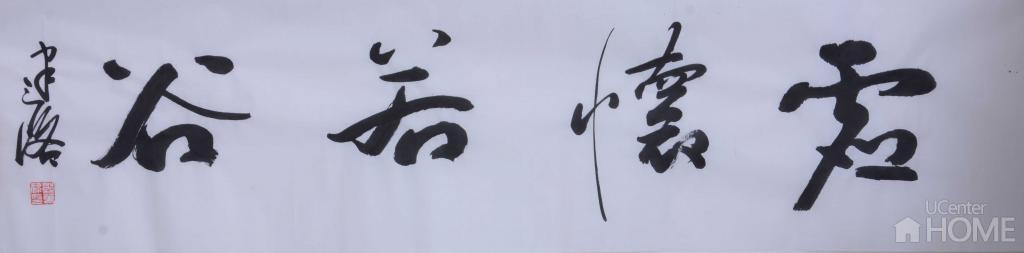 虚懷若谷
UCenter
HOME